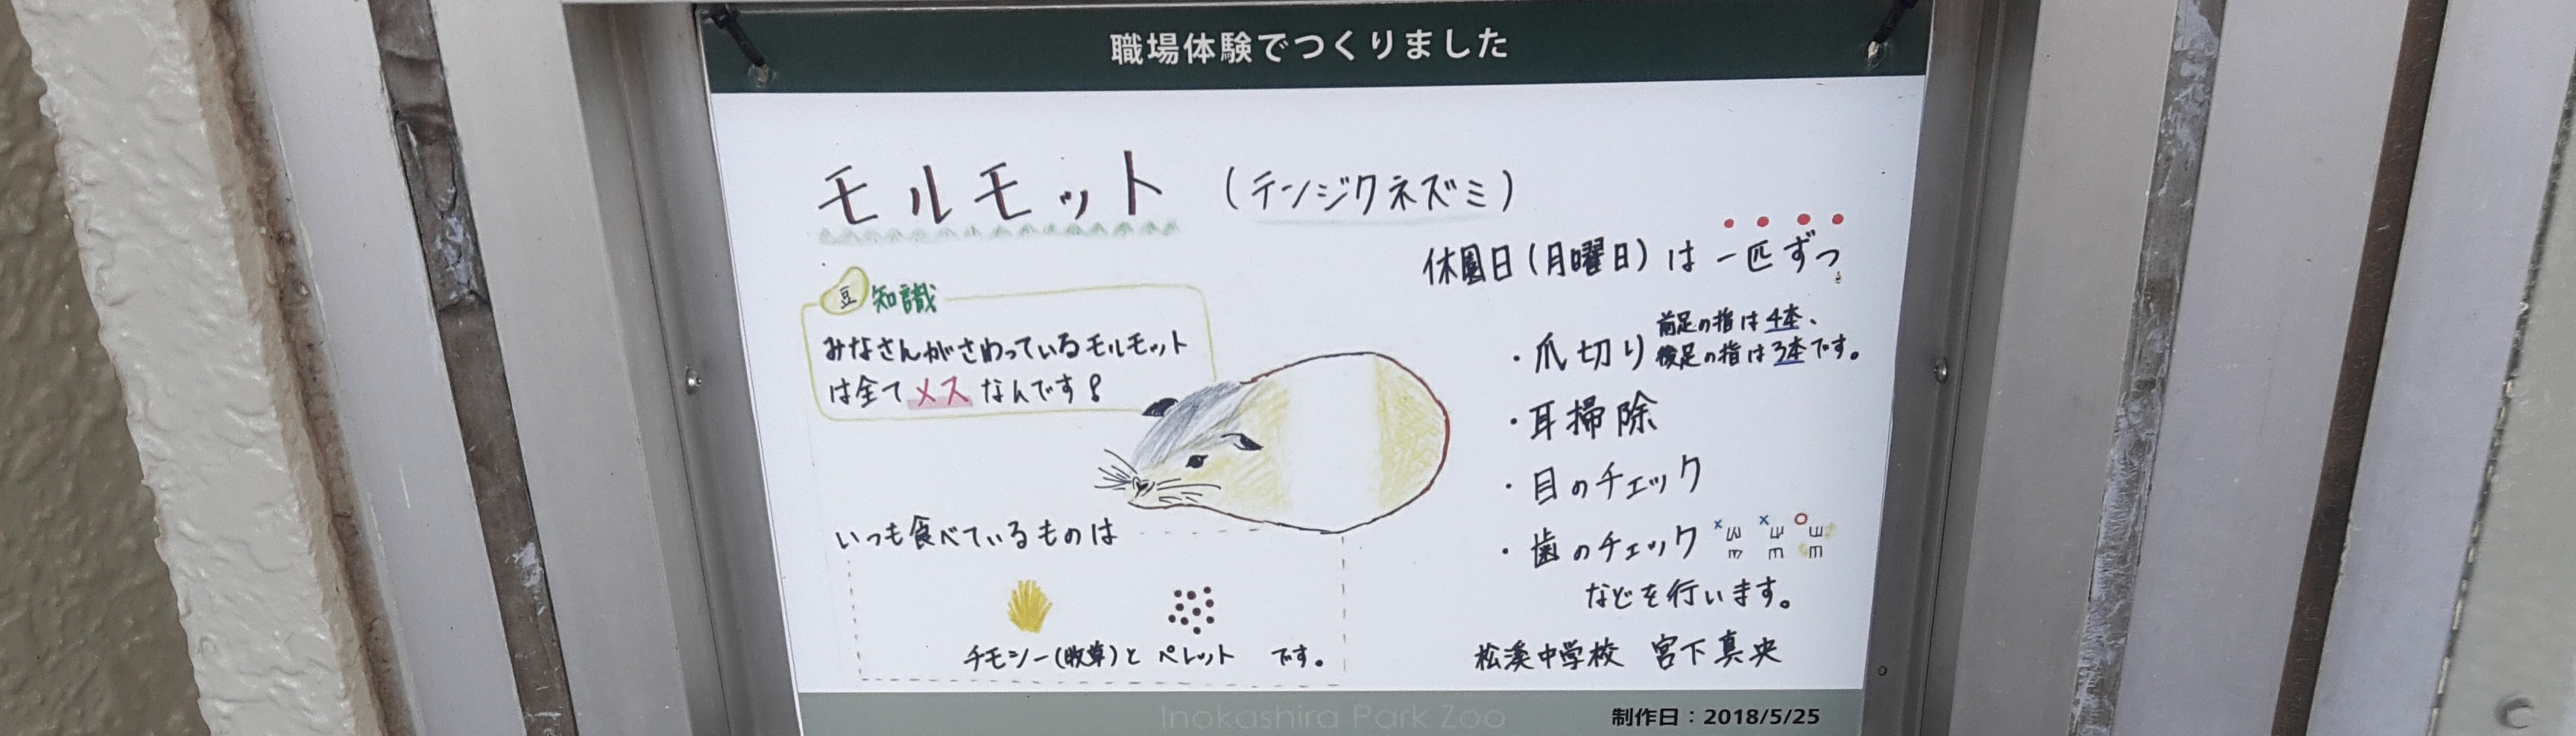 職場体験でつくりました
モルモット (テンジクネズミ)
豆知識
みなさんがさわっているモルモット
は全てメスなんです!
いつも食べているものは
チモシー(牧草)と ペレット です。
休園日(月曜日)は一匹ずつ
・爪切り 前足の指は4本、
後足の指は3本です。
・耳掃除
・目のチェック
・歯のチェック × × ○
などを行います。
松溪中学校 宮下真央
Inokashira Park Zoo
制作日:2018/5/25